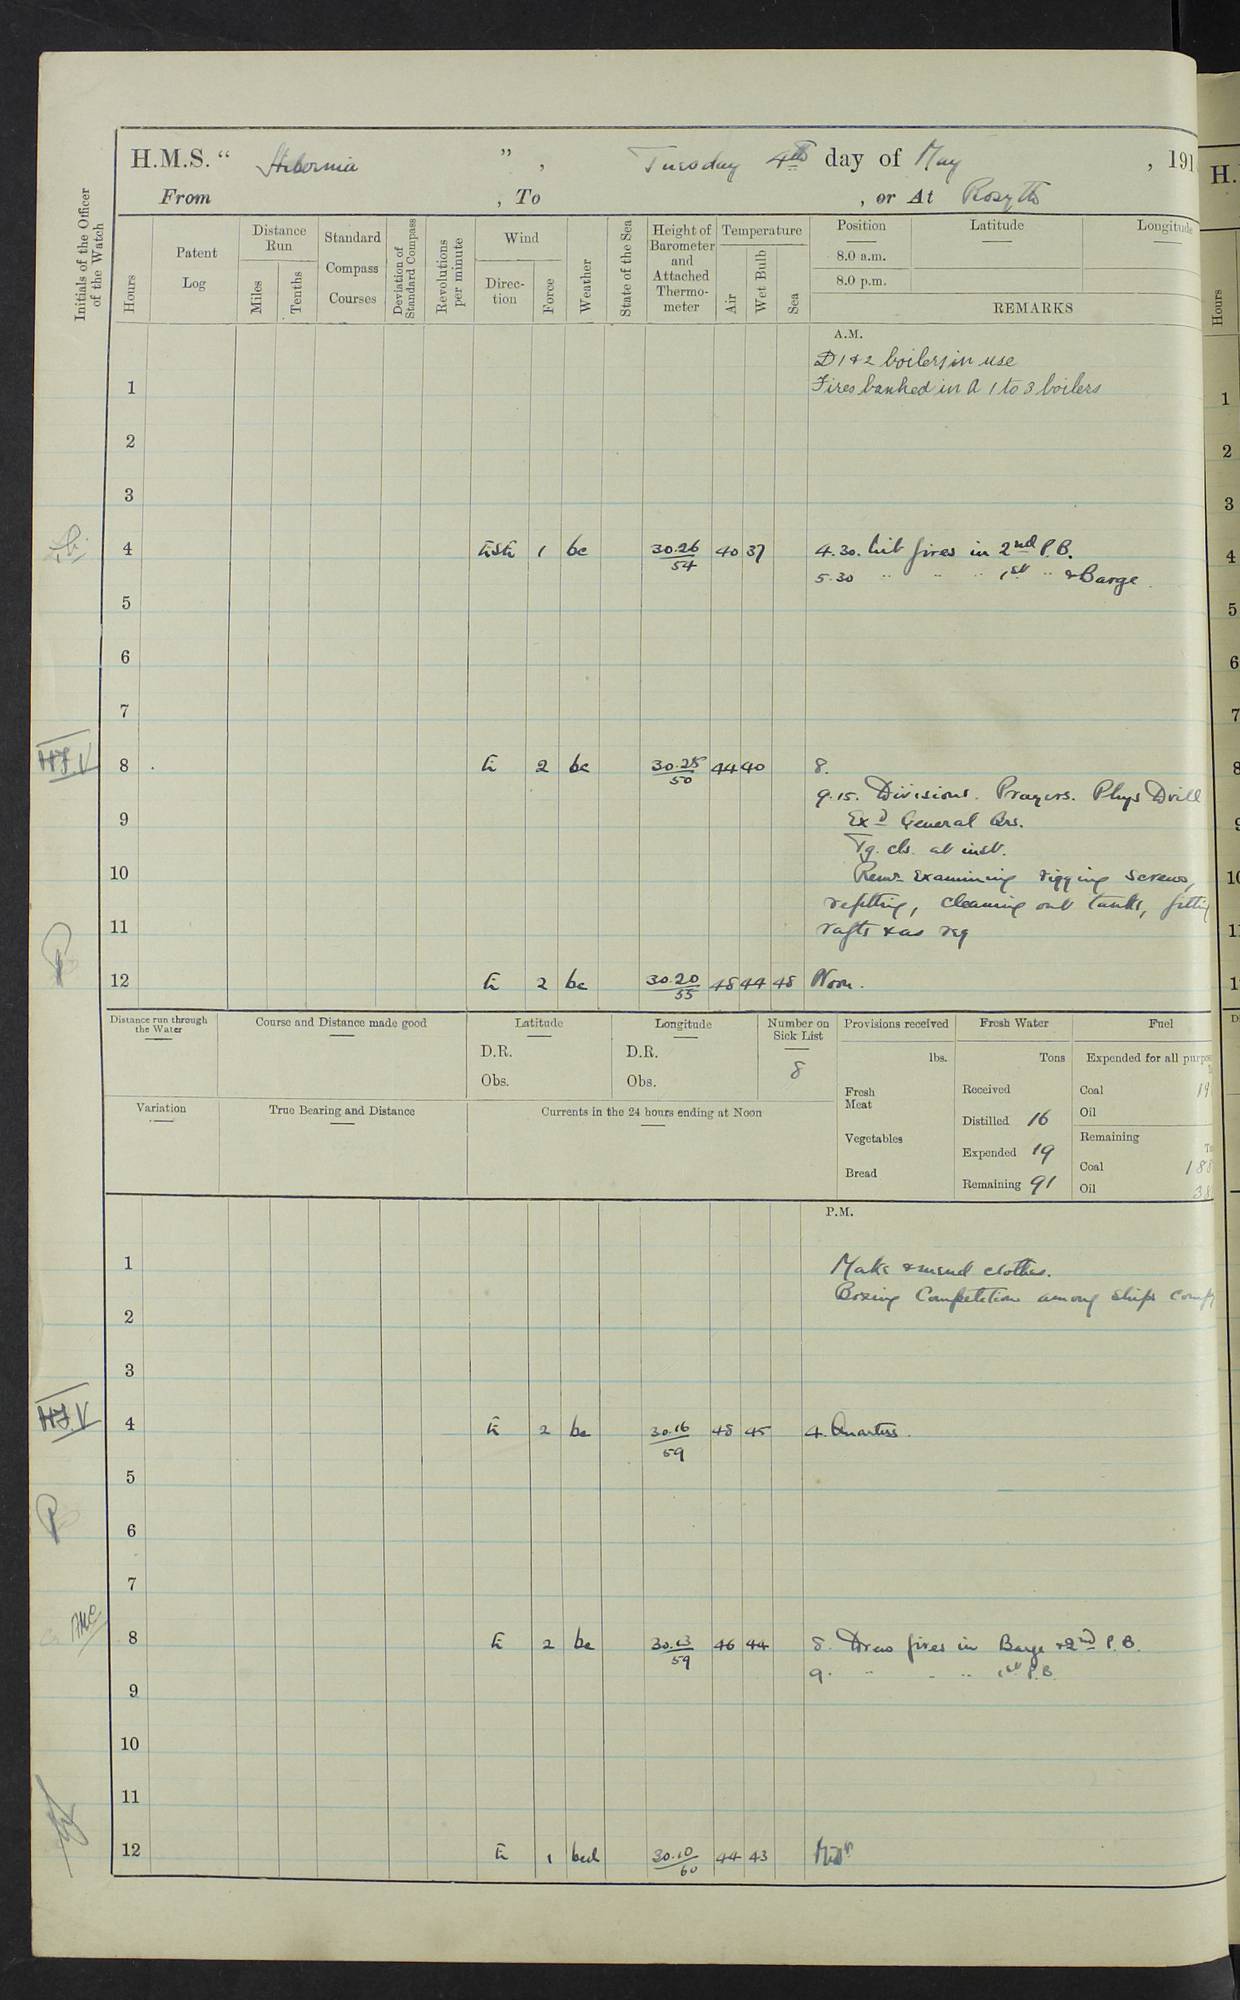 H.M.S. " Hibernia " , Tuesday 4th day of May , 191
From , To , or At Rosyth
Initials of the Officer of the Watch
Hours
Patent Log
Distance Run
Miles
Tenths
Standard Compass Courses
Deviation of Standard Compass
Revolutions per minute
Wind
Direc-tion
Force
Weather
State of the Sea
Height of Barometer and Attached Thermo-meter
Temperature
Air
Wet Bulb
Sea
Position Latitude Longitude
8.0 a.m.
8.0 p.m.
REMARKS
A.M.
D 1 & 2 boilers in use
1 Fires banked in A 1 to 3 boilers
2
3
4 ESE 1 bc 30.26/54 40 37 4.30. Lit fires in 2nd P.B.
5.30 " " " 1st " & Barge
5
6
7
H.J.V 8 E 2 bc 30.25/50 44 40 8.
9.15. Divisions. Prayers. Phys Drill
9 Exd General Qrs.
Tg. cls. at inst.
10 Remr Examining rigging screws,
refitting, cleaning out tanks, fitting
11 rafts & as req
12 E 2 bc 30.20/55 48 44 48 Noon.
Distance run through the Water
Course and Distance made good
Latitude
D.R.
Obs.
Longitude
D.R.
Obs.
Number on Sick List
8
Provisions received
lbs.
Fresh Meat
Vegetables
Bread
Fresh Water
Tons
Received
Distilled 16
Expended 19
Remaining 91
Fuel
Expended for all
Coal 19
Oil
Remaining
Coal 188
Oil 38
Variation
True Bearing and Distance
Currents in the 24 hours ending at Noon
P.M.
1 Make & mend clothes.
Boxing Competition among ships
2
3
H.J.V 4 E 2 bc 30.16/59 48 45 4. Quarters.
5
6
7
8 E 2 bc 30.13/59 46 44 8. Drew fires in Barge & 2nd P.B.
9. " " " 1st P.B.
9
10
11
12 E 1 bcd 30.10/60 44 43 Midt
H.
Hours
1
2
3
4
5
6
7
8